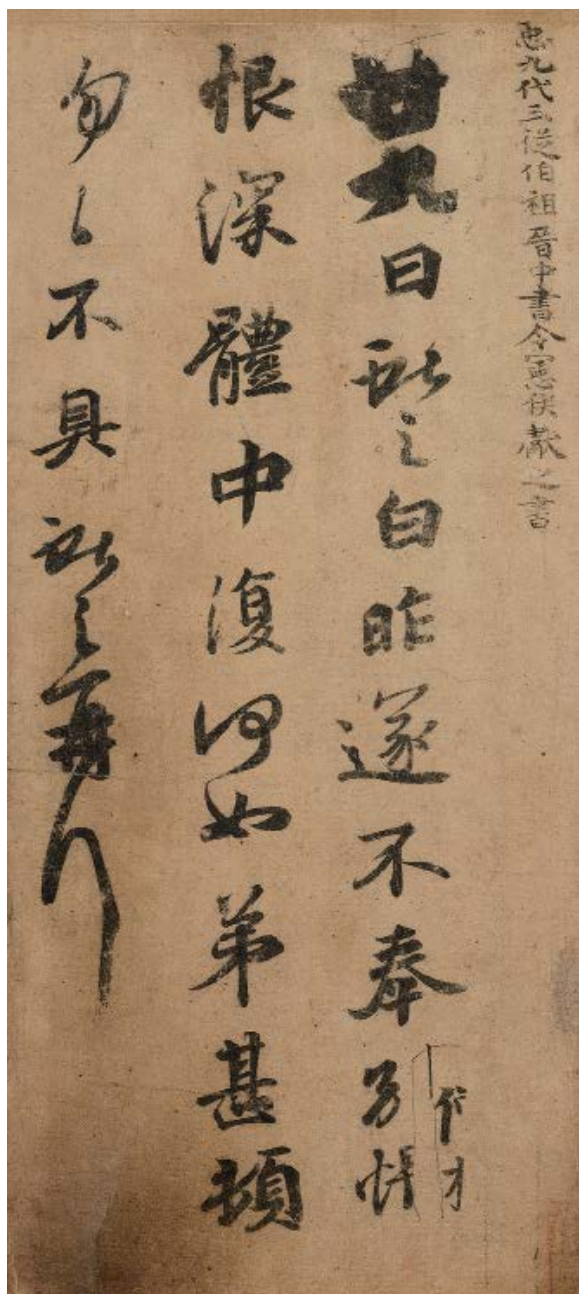 𢘑九代三從伯祖晉中書令憲侯獻之書
廿九日獻之白昨遂不奉別悵
恨深體中復何如弟甚頓
匆〻不具獻之再拜